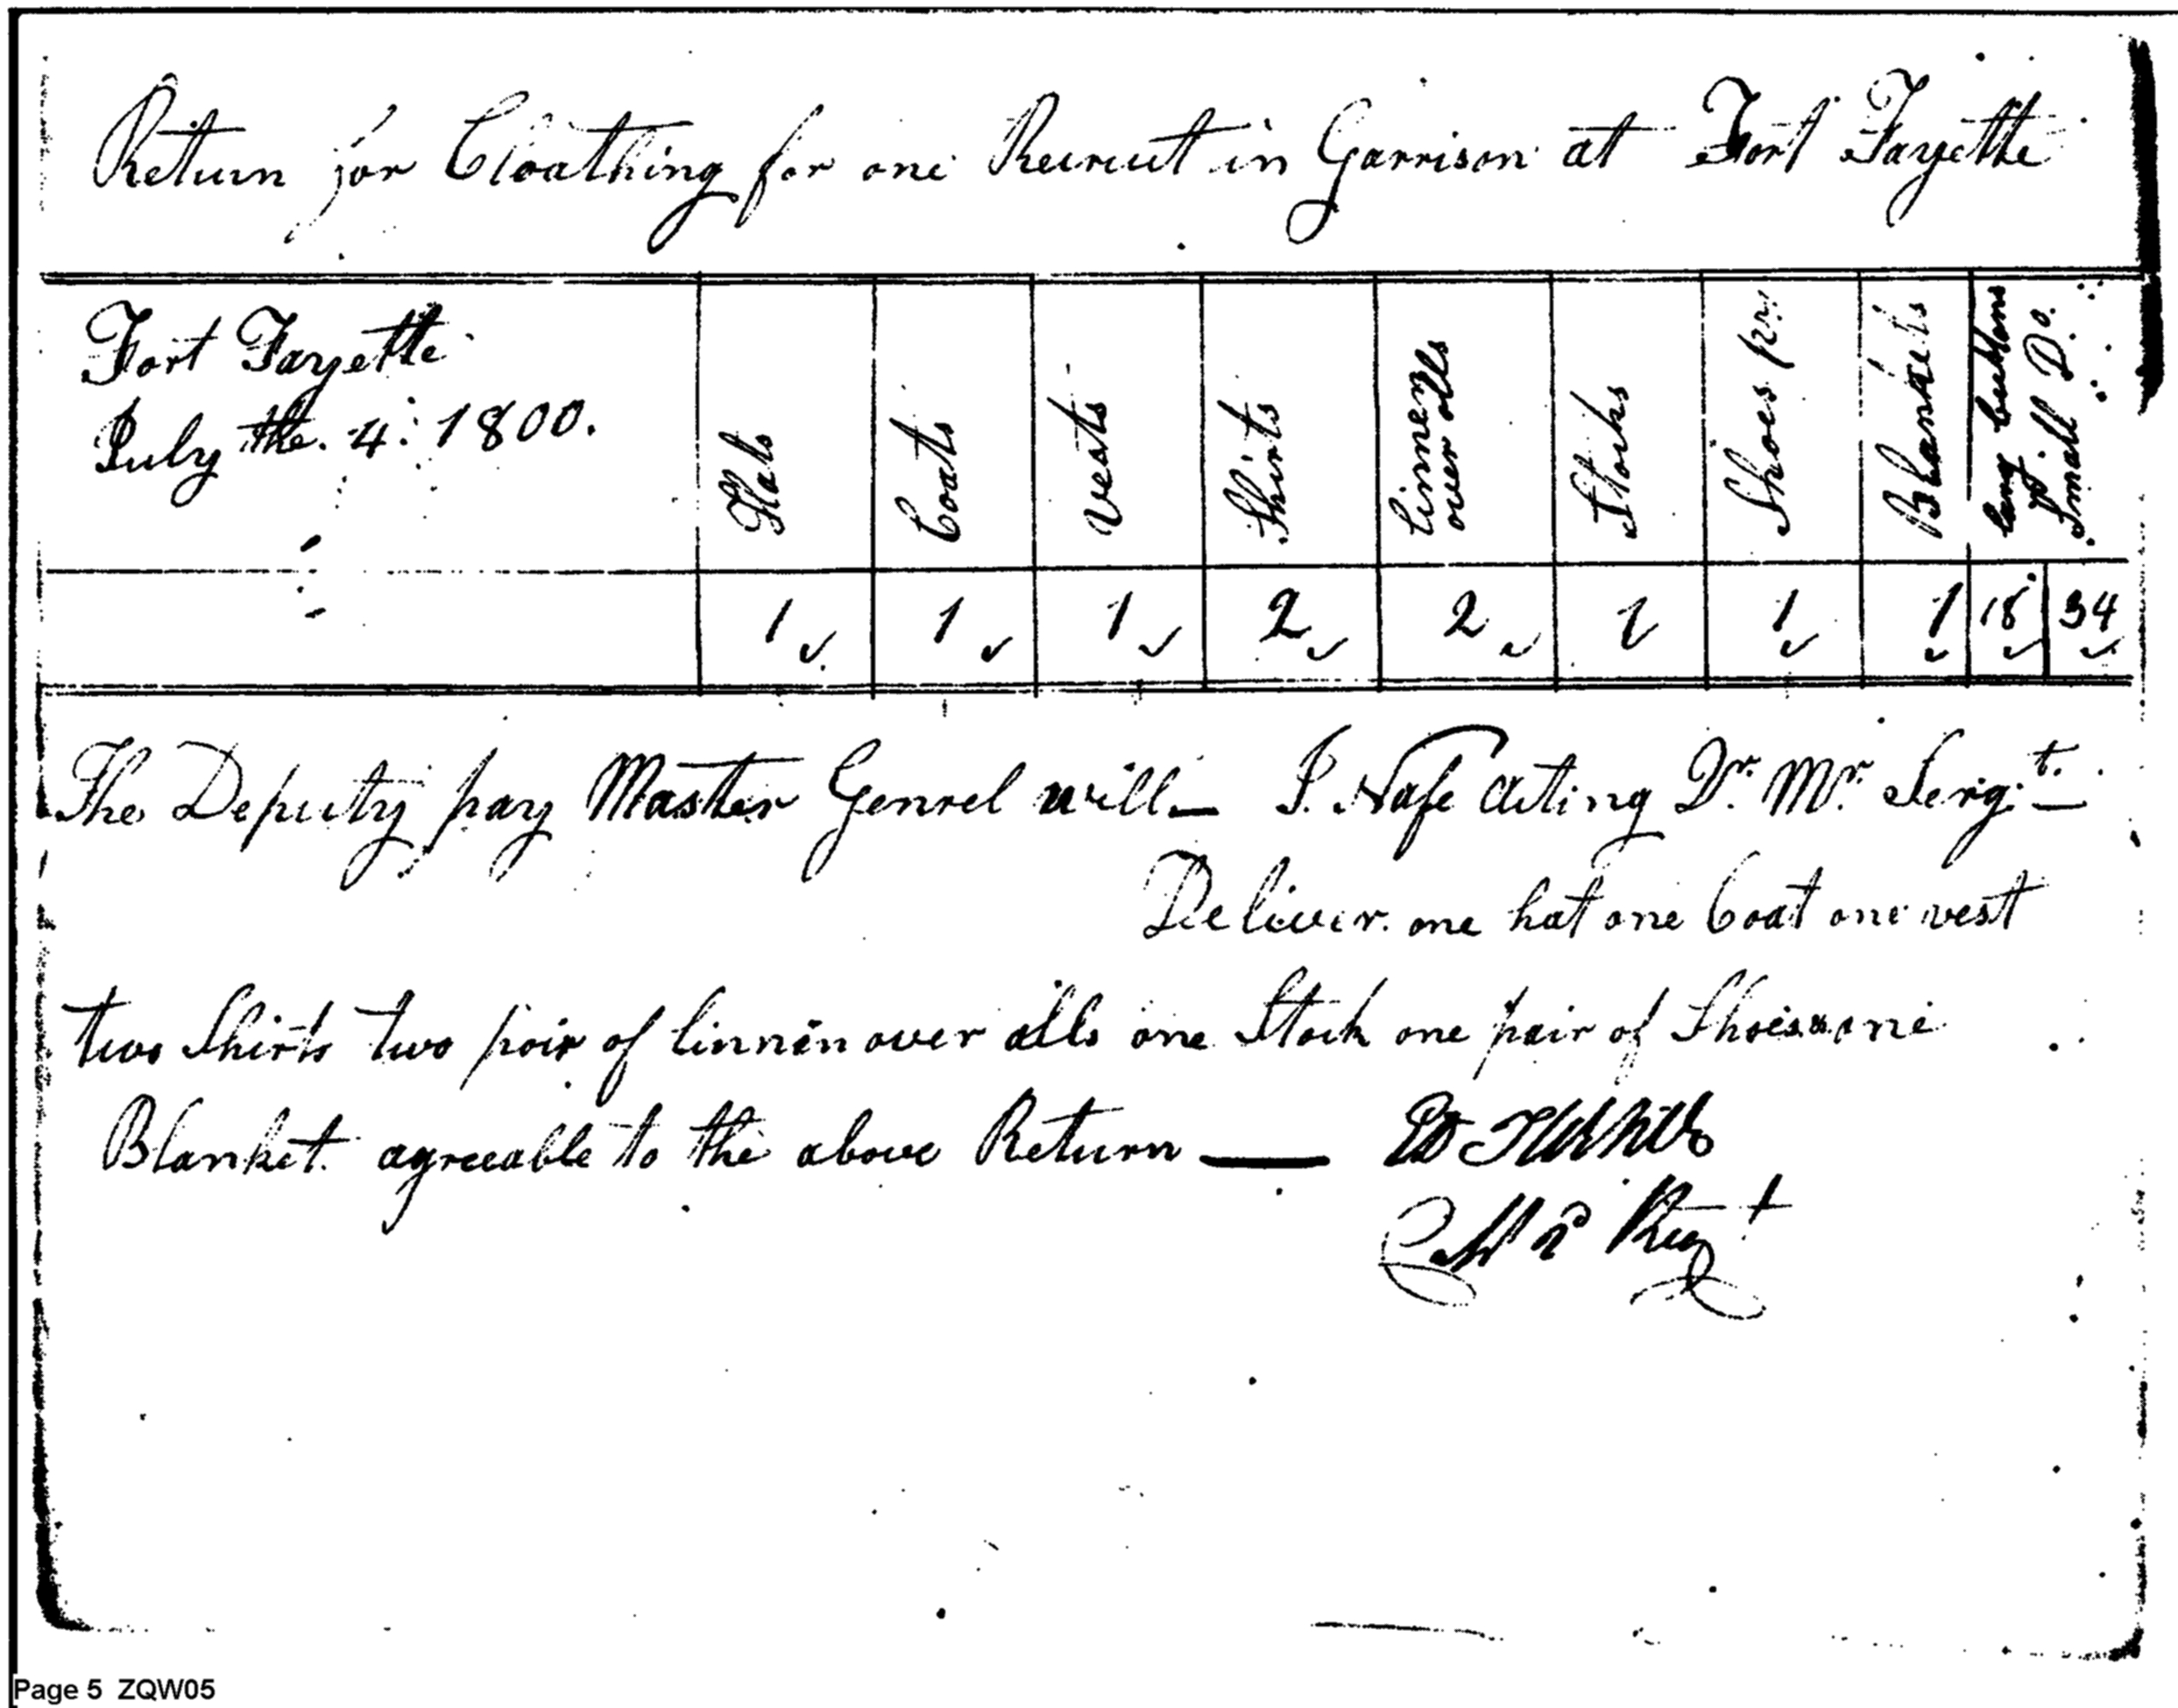 Return for Cloathing for one Recruit in Garrison at Fort Fayette
Fort Fayette
July the. 4: 1800.
Hats
Coats
Vests
Shirts
Linnen
over alls
Stocks
Shoes pr.
Blankets
larg buttons
Small Do.
1 1 1 2 2 1 1 1 18 34
The Deputy pay Master Genrel will — P. Nafe Acting Qr. Mr. Sergt. —
Deliver one hat one Coat one vest
two Shirts two poir of linnen over alls one Stock one pair of Shoes & one
Blanket agreeable to the above Return —
Page 5 ZQW05